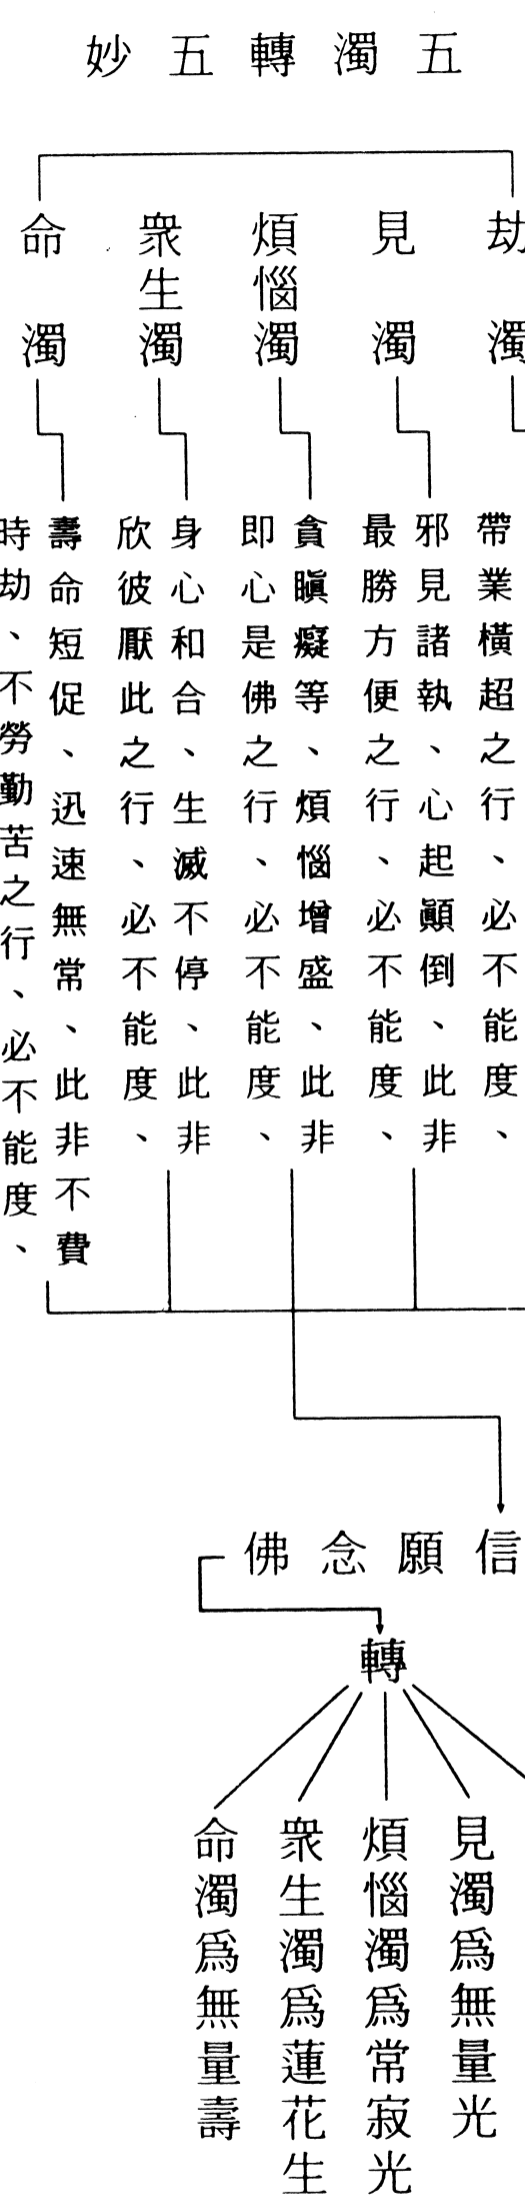 五濁轉五妙
劫濁
見濁
煩惱濁
衆生濁
命濁
帶業橫超之行、必不能度、
邪見諸執、心起顚倒、此非
最勝方便之行、必不能度、
貪瞋癡等、煩惱增盛、此非
即心是佛之行、必不能度、
身心和合、生滅不停、此非
欣彼厭此之行、必不能度、
壽命短促、迅速無常、此非不費
時劫、不勞勤苦之行、必不能度、
信願念佛
轉
見濁爲無量光
煩惱濁爲常寂光
衆生濁爲蓮花生
命濁爲無量壽